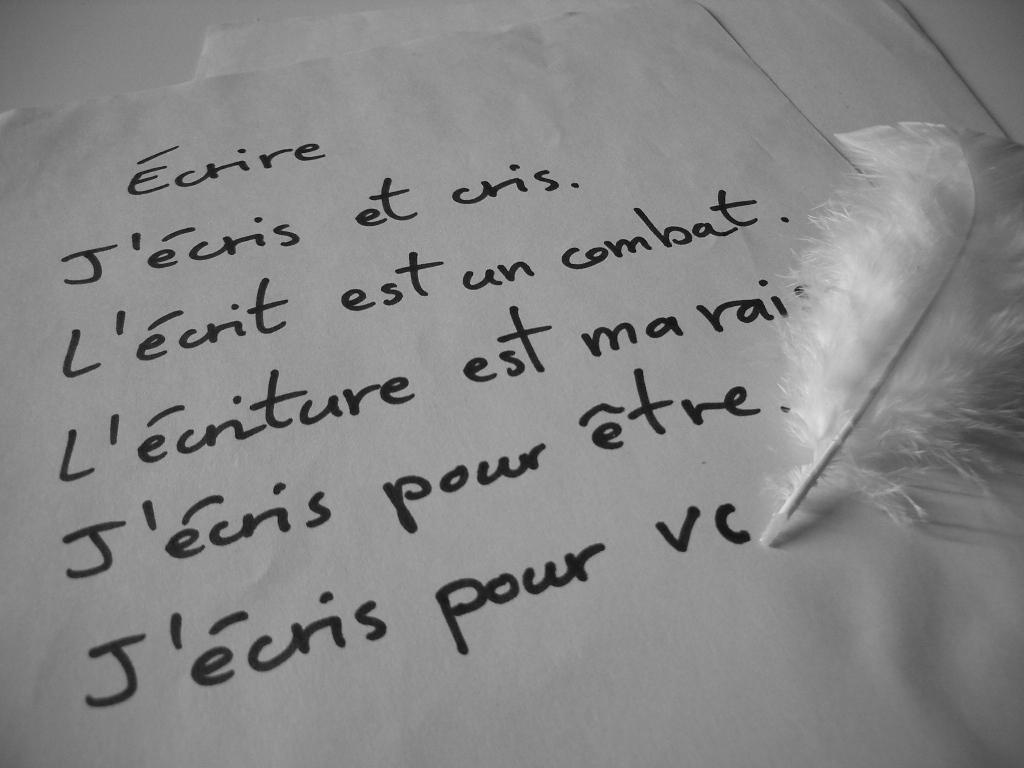 Écrire
J'écris et cris.
L'écrit est un combat.
L'écriture est ma
J'écris pour être.
J'écris pour